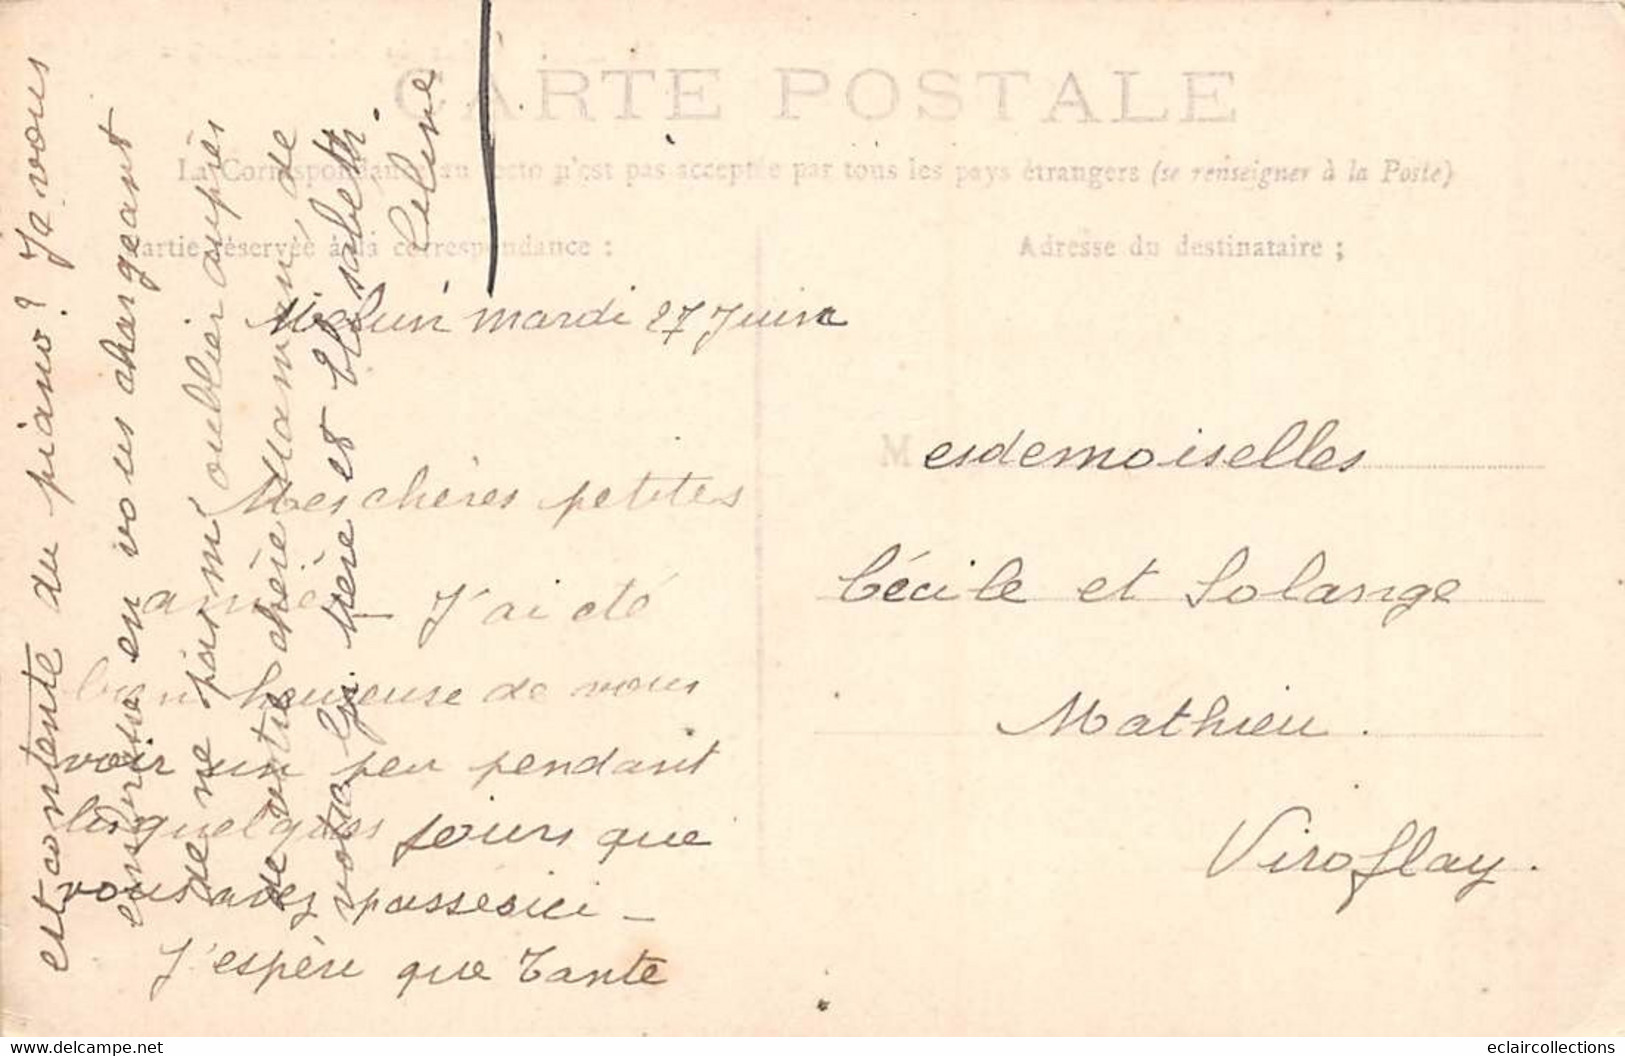 CARTE POSTALE
La Correspondance au recto n'est pas acceptée par tous les pays étrangers (se renseigner à la Poste)
Partie réservée à la correspondance :
Adresse du destinataire ;
mardi 27 Juin
Mes chères petites
amies — J'ai été
bien heureuse de vous
voir un peu pendant
les quelques jours que
vous avez passés ici —
J'espère que Tante
est contente du piano ? Je vous
embrasse en vous chargeant
de ne pas m'oublier auprès
de votre chère Maman, de
votre frère et Elisabeth.
Celine
Mesdemoiselles
Cécile et Solange
Mathieu.
Viroflay.
www.delcampe.net
eclaircollections